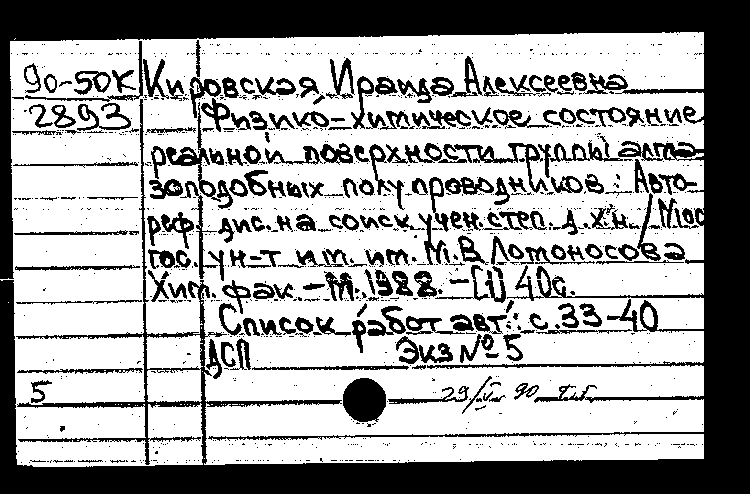 90-50К Кировская Ираида Алексеевна
2893 Физико-химическое состояние
реальной поверхности группы алма-
зоподобных полупроводников: Авто-
реф. дис. на соиск. учен. степ. д.х.н. / Мос
гос. ун-т им. им. М.В Ломоносова
Хим. фак. - М. 1988. - [1] 40с.
Список работ авт.: с. 33-40
ДСП Экз № 5
5 29/V 90